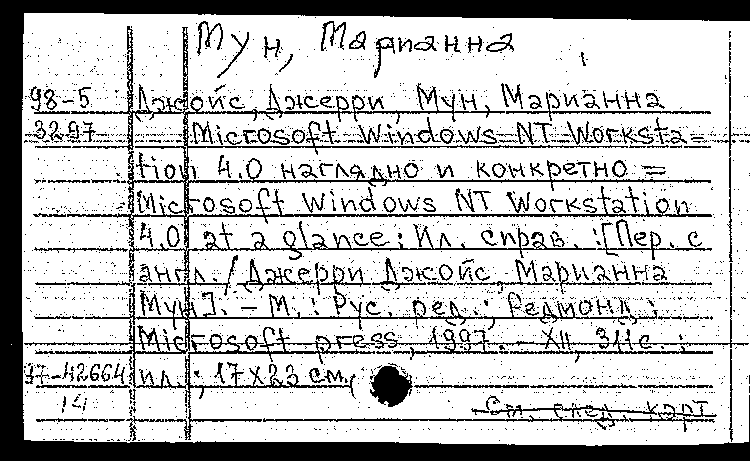 Мун, Марианна
98-5 Джойс, Джерри, Мун, Марианна
3297 Microsoft Windows NT Worksta=
tion 4.0 наглядно и конкретно =
Microsoft Windows NT Workstation
4.0 at a glance : Ил. справ. : [Пер. с
англ. / Джерри Джойс, Марианна
Мун]. - М. : Рус. ред. ; Редмонд :
Microsoft press, 1997. - XII, 311 с. :
97-42664 ил. ; 17х23 см.
14
См. след. карт